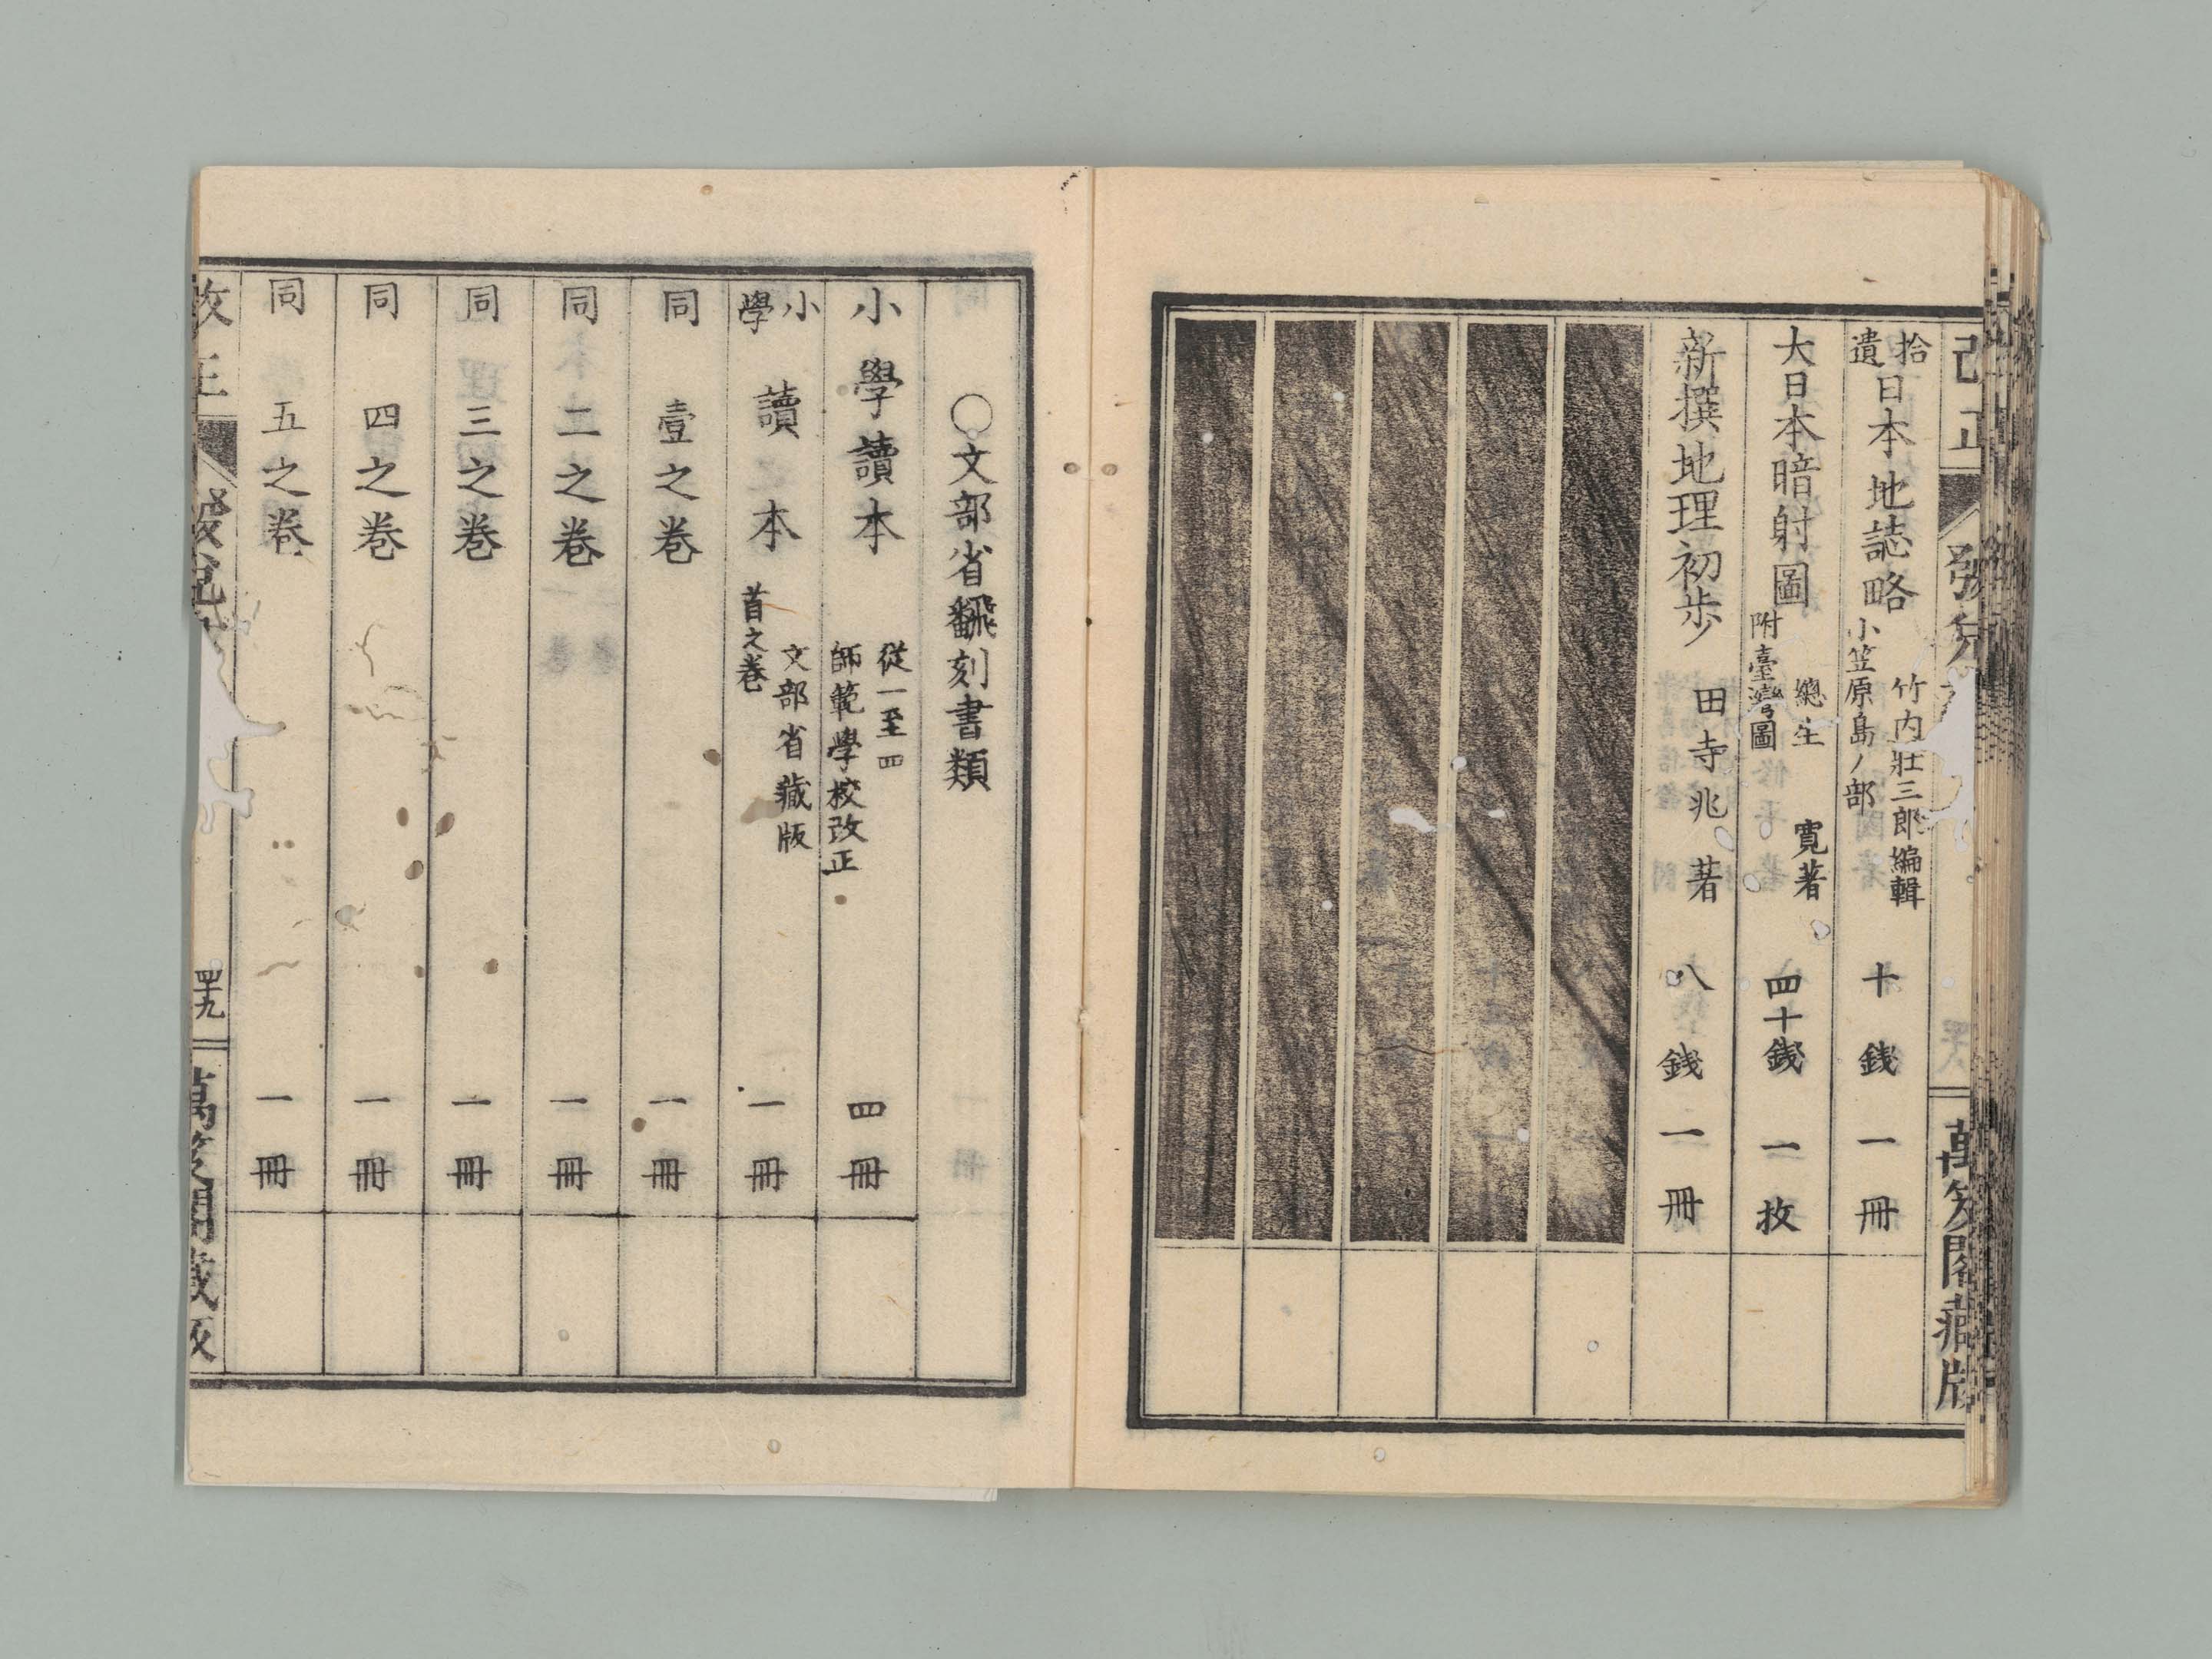 改正
萬笈閣藏版
拾遺 日本地誌略 小笠原島ノ部 竹内壯三郎編輯 十銭 一冊
大日本暗射圖 附臺灣圖 總生 寛著 四十銭 一枚
新撰地理初歩 田寺兆 著 八銭 一冊
○文部省飜刻書類
小學讀本 從一至四 師範學校改正 四冊
小學 讀本 首之巻 文部省藏版 一冊
同 壹之巻 一冊
同 二之巻 一冊
同 三之巻 一冊
同 四之巻 一冊
同 五之巻 一冊
改正
四十九
萬笈閣藏版